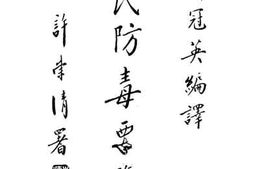 冠英編譯
民防毒要
許崇清署